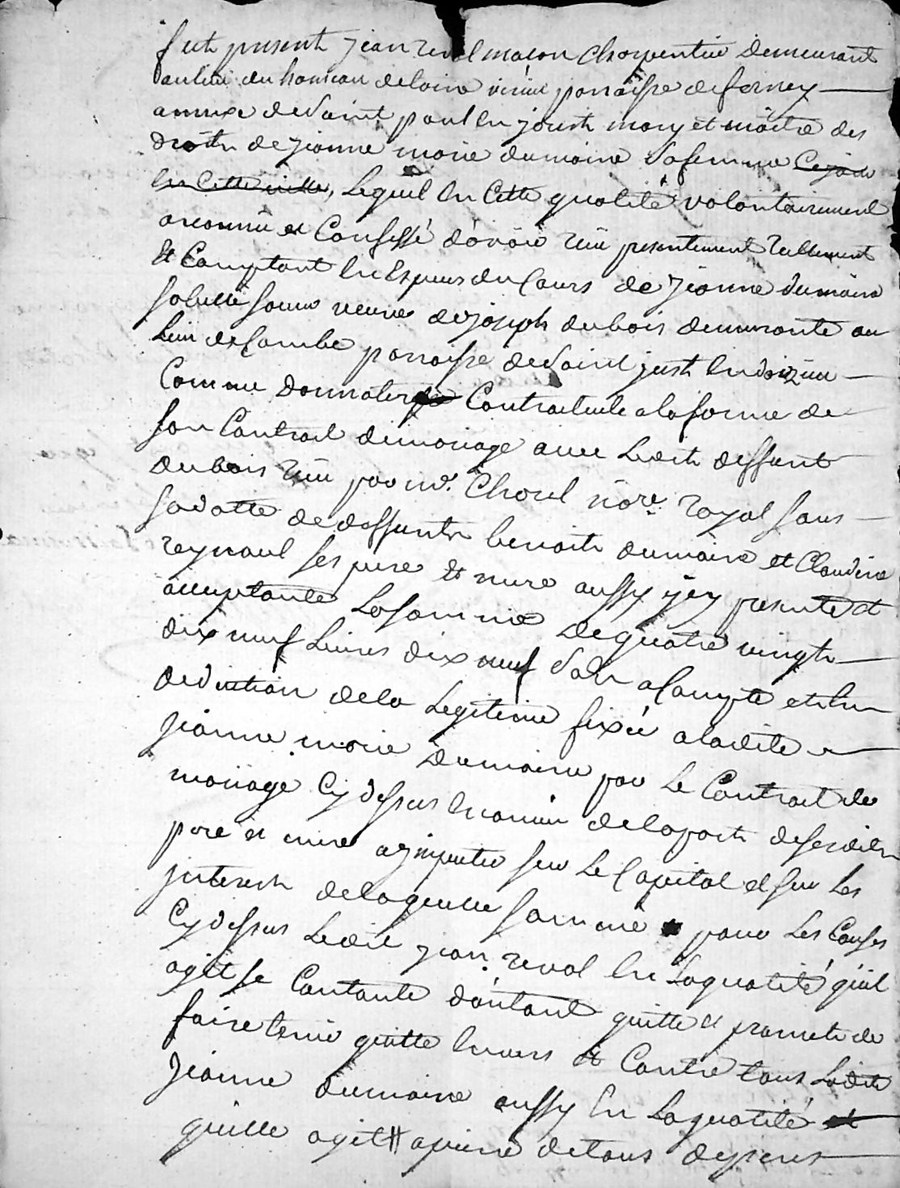 fut present jean reval masson charpentier demeurant
au lieu du hameau de loire parroisse de forney
annexe de saint paul en jarest mary et maitre des
droits de jeanne marie dumaine sa femme
en cette ville, lequel en cette qualité volontairement
a reconnu et confessé d'avoir reçu presentement reellement
et comptant en Especes du Cours de jeanne dumaine
sa belle soeur veuve de joseph dubois demeurante au
lieu de Combe parroisse de saint just en doizieu
Comme donnataire Contractuele a la forme de
son Contract de mariage avec Ledit deffunt
dubois reçu par me. Chorel nore. royal sous
la datte de deffunts benoit dumaine et Claudine
reynaud ses pere et mere aussy presente et
acceptante La somme de quatre vingt
dix neuf Livres dix neuf sols a Compte et en
deduction de la Legitime fixée a ladite
jeanne marie Dumaine par Le Contract de
mariage Cy dessus Enoncé de la part de sesdits
pere et mere a jmputer sur Le Capital et sur Les
jnterests de laquelle somme pour Les Causes
Cy dessus Ledit jean reval En La qualité qu'il
agit se Contante d'autant quitte et promet de
faire tenir quitte Envers et Contre tous Ladite
Jeanne dumaine aussy En La qualité
qu'elle agit a peine de tous depens